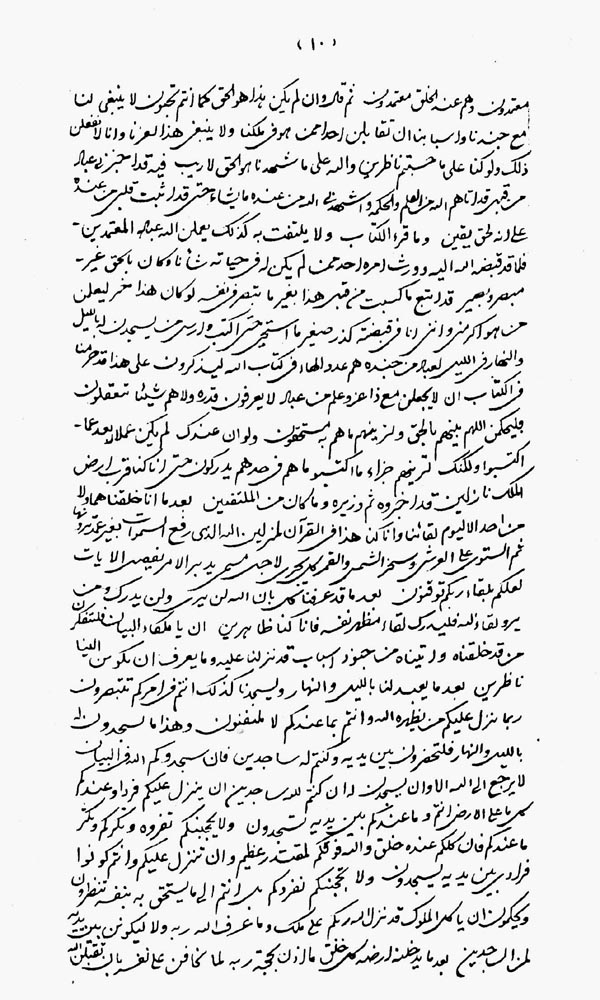 (١٠)
معتمدون وهم عند الخلق معتمدون ثم قال وان لم يكن هذا هو الحق كما انتم تحبون لا ينبغي لنا
مع جندنا واسبابنا ان تقابلن احدا ممن هو في ملكنا ولا ينبغي هذا لعزنا وانا لا نفعلن
ذلك ولو كنا على ما حسبتم ناظرين والله على ما شهدنا هو الحق لا ريب فيه قد اخبرني عبد
من قبلي قد اتاهم الله من العلم والحكمة الله من عنده ما يشاء حتى قد اثبت قلبي من عنده
على انه لحق يقين وما قرء الكتاب ولا يلتفت به كذلك يعملن الله عباده المعتمدين
فلما قد قبضه الله اليه وورث امره احد ممن لم يكن له في حياته شأنا وكان بالحق غير
مبصر وبصير قد اتبع ما كسبت من قبل هذا بغير ما يتبصر في نفسه لو كان هذا خير ليعلمن
من هو اكبر مني وانني انا في قبضته كذر صغير ما استحيي حتى اكتب وارسل من يسجدن له بالليل
والنهار في الليل لعباد من جنده هم عدد الهاء في كتاب الله ليذكرون على هذا قد حرمنا
في الكتاب ان لا يجعلن مع ذا عز وعلم من عباد لا يعرفون قدره ولا هم شيئا تعقلون
فليحكمن اللهم بينهم بالحق ولنرينهم ما هم به مستحقون ولو ان عندك لم يكن عملا له بعد عما
اكتسبوا ولكنك لتريهم جزاء ما اكتسبوا ما هم في حدهم يدركون حتى انا كنا قرب ارض
الملك نازلين قد اخبروه ثم وزيره وما كان من الملتفتين بعد ما انا خلقناهما ولا
من احد الا ليوم لقائنا وانا كنا هذا في القرآن لمنزلين الله الذي رفع السموات بغير عمد ترونها
ثم استوى على العرش وسخر الشمس والقمر كل يجري لاجل مسمى يدبر الامر يفصل الايات
لعلكم بلقاء ربكم توقنون بعد ما قد عرفنا كل بان الله لن يرى ولن يدرك ومن
يرد لقاء الله فليدرك لقاء مظهر نفسه فانا كنا ظاهرين ان يا ملاء البيان فلتتفكرن
من قد خلقناه واتيناه من جنود اسباب قد نزلنا عليه وما يعرف ان يكون الينا
ناظرين بعد ما يعبد لنا بالليل والنهار وليسجدنا كذلك انتم في امركم تتبصرون
ربما ينزل عليكم من يظهره الله وانتم بما عندكم لا تلتفتون وهذا ما تسجدون له
بالليل والنهار فلتحضرون بين يديه وكنتم له ساجدين فان سجودكم الله في البيان
لا يرجع الى الله الا وان تسجدن له ان كنتم لله ساجدين ان ينزل عليكم فردا وعندكم
كل ما على الارض انتم وما عندكم بين يديه لتسجدون ولا يحجبنكم تفرده وتكثركم وتكثر
ما عندكم فان كلكم عنده خلق والله فوقكم لمقتدر عظيم وان تنزل عليكم وانتم كونوا
فرادى بين يديه ليسجدون ولا يحجبنكم تفردكم بل انتم الى ما يستحق به بنفسه تنظرون
وتحكمون ان يا كل الملوك قد نزل الله ربكم على ملك وما عرف الله ربه ولا ليكونن بين يديه
لمن الساجدين بعد ما يدخلنه ارضه كل خلق ما اذن بحجة ربه لما يخافن على نفسه بان